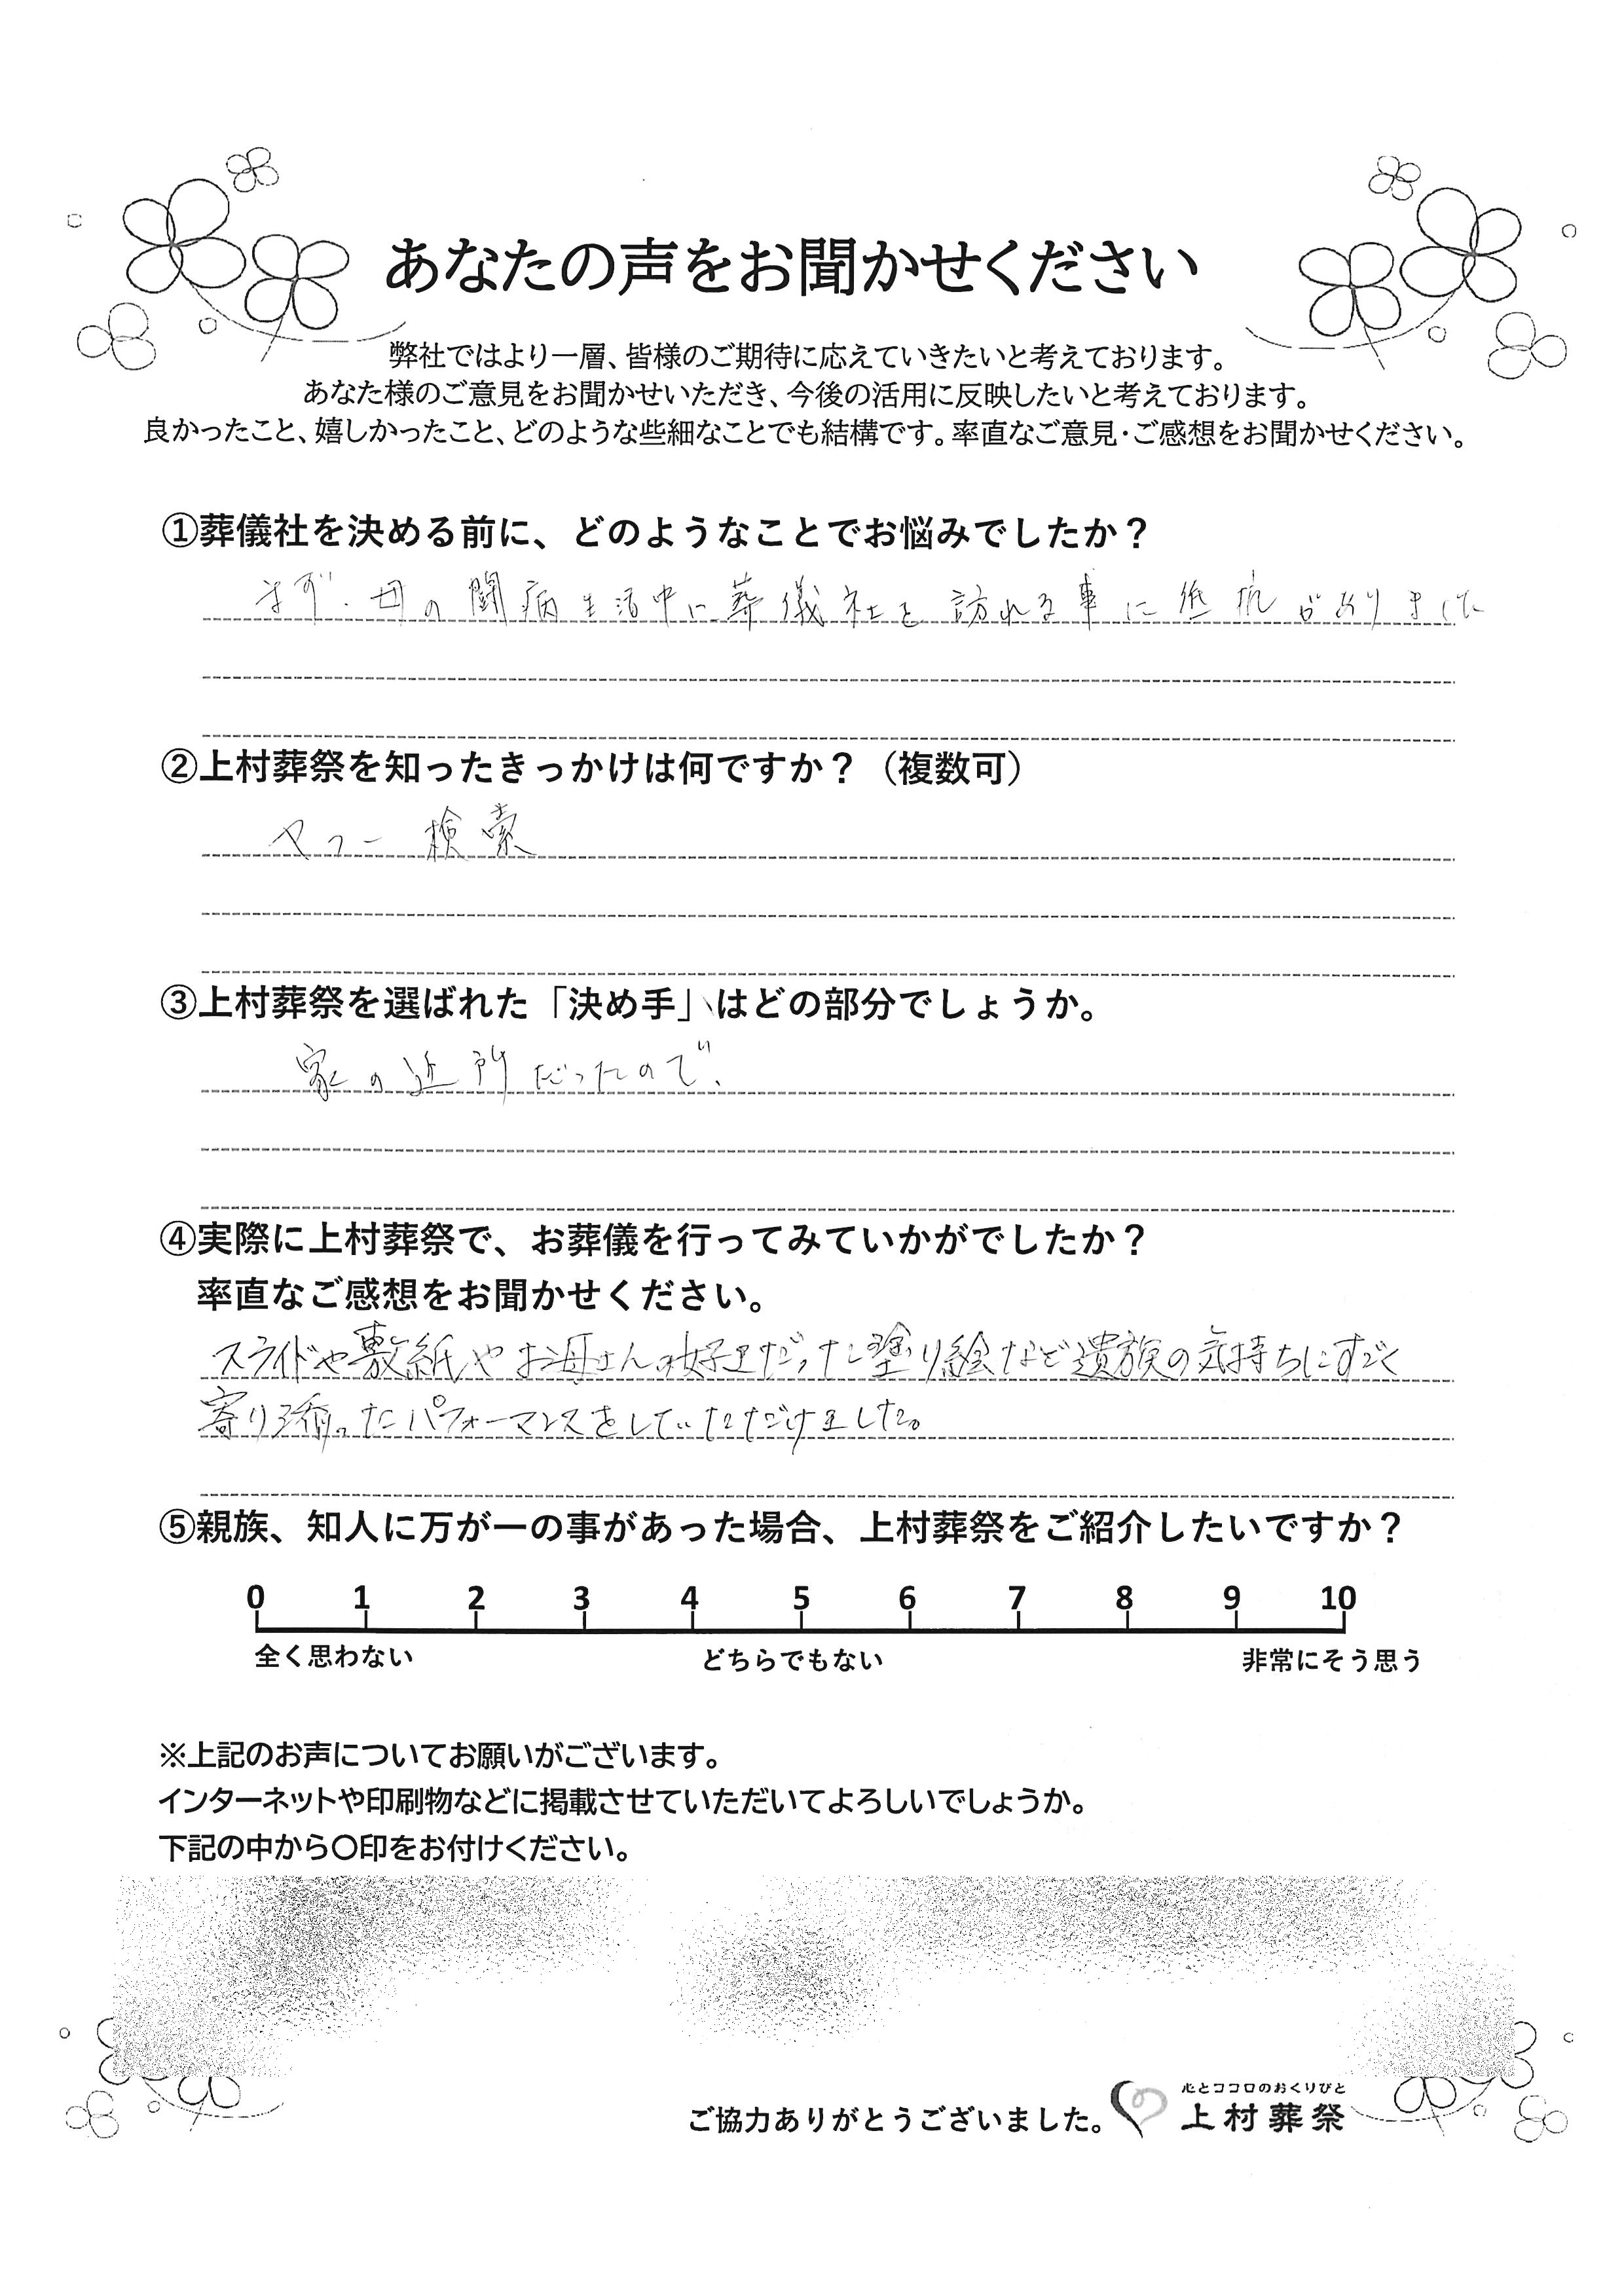 あなたの声をお聞かせください
弊社ではより一層、皆様のご期待に応えていきたいと考えております。
あなた様のご意見をお聞かせいただき、今後の活用に反映したいと考えております。
良かったこと、嬉しかったこと、どのような些細なことでも結構です。率直なご意見・ご感想をお聞かせください。
①葬儀社を決める前に、どのようなことでお悩みでしたか？
まず、母の闘病生活中に葬儀社を訪れる事に抵抗がありました
②上村葬祭を知ったきっかけは何ですか？（複数可）
ヤフー検索
③上村葬祭を選ばれた「決め手」はどの部分でしょうか。
家の近所だったので、
④実際に上村葬祭で、お葬儀を行ってみていかがでしたか？
率直なご感想をお聞かせください。
スライドや敷紙やお母さんの好きだった塗り絵など遺族の気持ちにすごく
寄り添ったパフォーマンスをしていただけました。
⑤親族、知人に万が一の事があった場合、上村葬祭をご紹介したいですか？
0 1 2 3 4 5 6 7 8 9 10
全く思わない どちらでもない 非常にそう思う
※上記のお声についてお願いがございます。
インターネットや印刷物などに掲載させていただいてよろしいでしょうか。
下記の中から〇印をお付けください。
心とココロのおくりびと
ご協力ありがとうございました。 上村葬祭